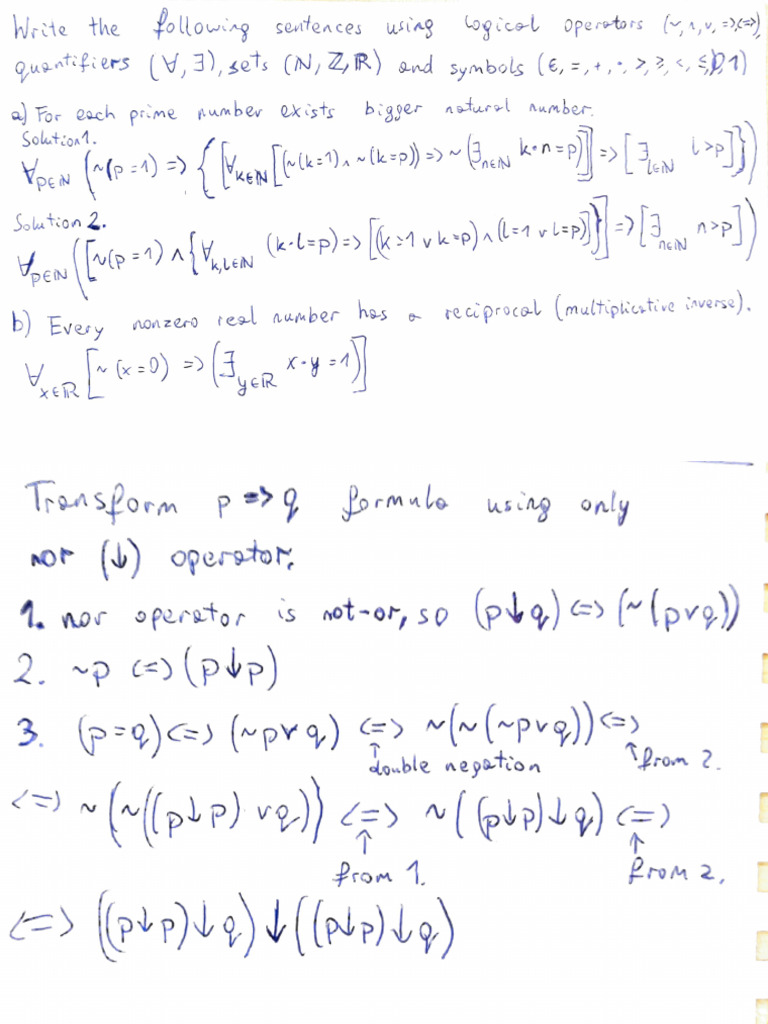 Write the following sentences using logical operators (~,∧,∨,=>,<=>),
quantifiers (∀,∃), sets (ℕ,ℤ,ℝ) and symbols (∈,=,+,·,>,≥,<,≤,0,1)
a) For each prime number exists bigger natural number.
Solution 1.
∀p∈ℕ (~(p=1) => {[∀k∈ℕ [(~(k=1) ∧ ~(k=p)) => ~(∃n∈ℕ k·n=p)]] => [∃l∈ℕ l>p]})
Solution 2.
∀p∈ℕ ([~(p=1) ∧ {∀k,l∈ℕ (k·l=p) => [(k=1 ∨ k=p) ∧ (l=1 ∨ l=p)]}] => [∃n∈ℕ n>p])
b) Every nonzero real number has a reciprocal (multiplicative inverse).
∀x∈ℝ [~(x=0) => (∃y∈ℝ x·y=1)]
Transform p => q formula using only
nor (↓) operator.
1. nor operator is not-or, so (p↓q) <=> (~(p∨q))
2. ~p <=> (p↓p)
3. (p=q) <=> (~p∨q) <=> ~(~(~p∨q)) <=>
↑ double negation ↑ from 2.
<=> ~(~((p↓p) ∨q)) <=> ~((p↓p)↓q) <=>
↑ from 1. ↑ from 2.
<=> ((p↓p)↓q)↓((p↓p)↓q)